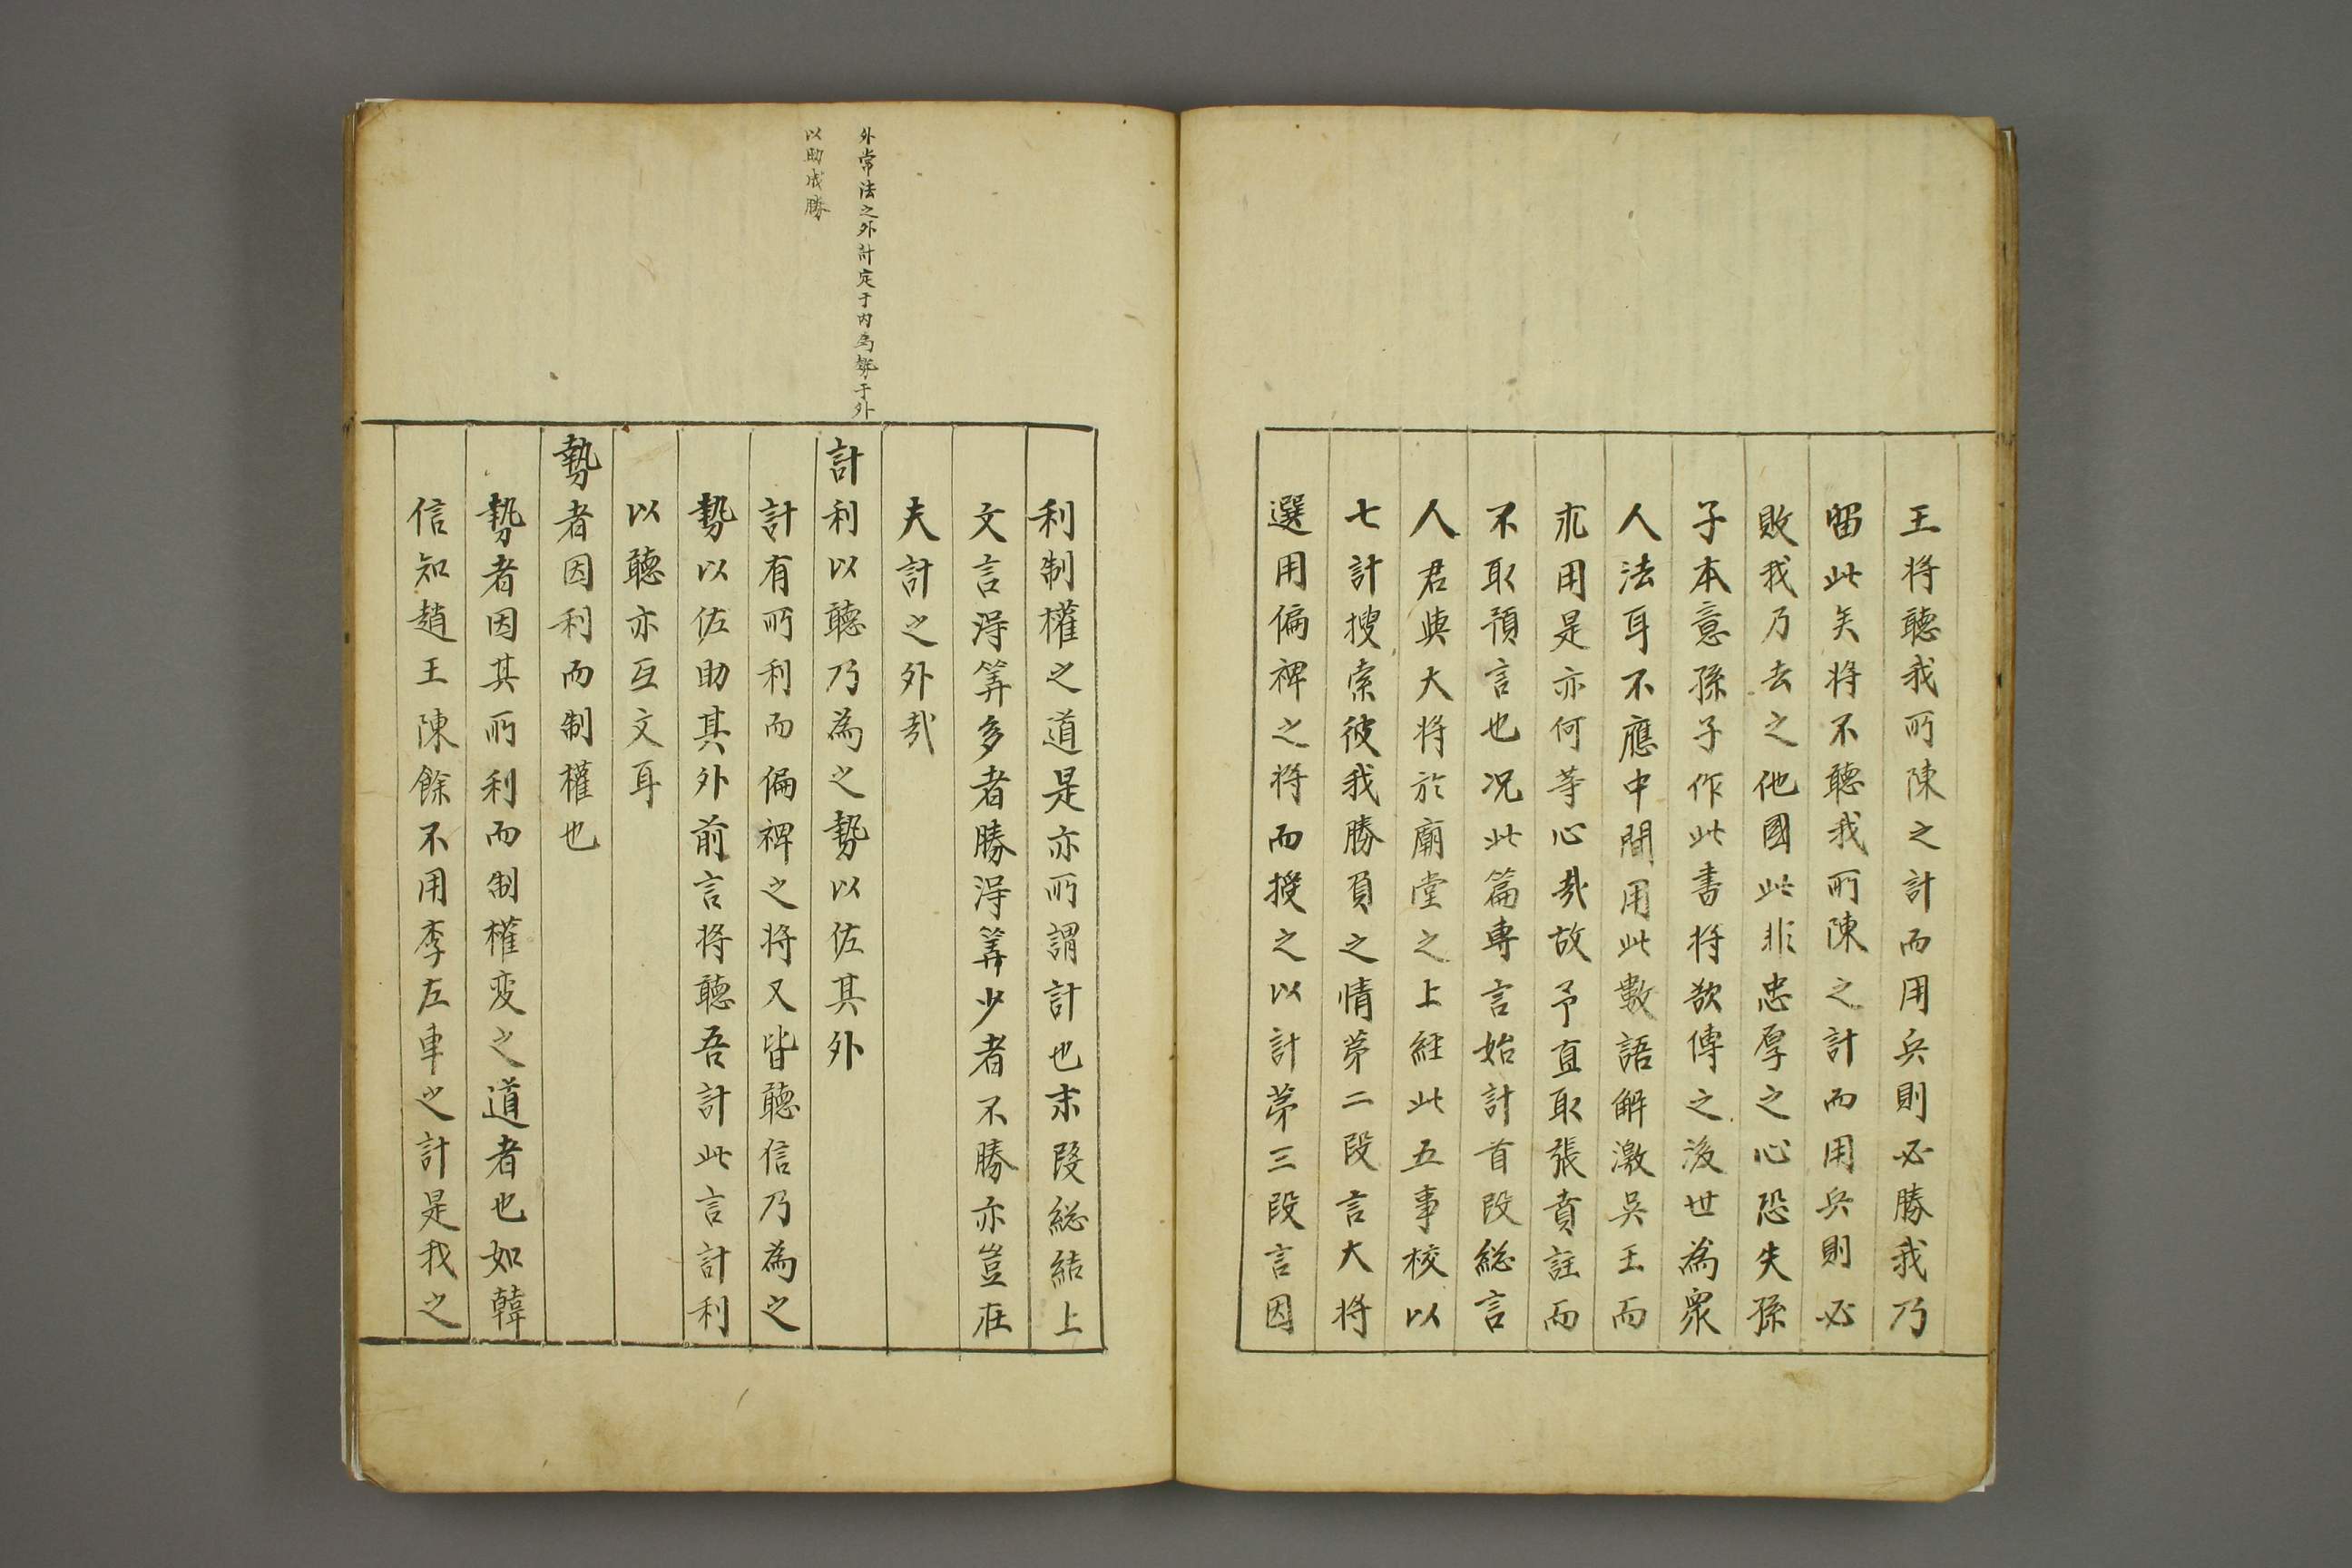 王将聽我所陳之計而用兵則必勝我乃
留此矣将不聽我所陳之計而用兵則必
敗我乃去之他國此非忠厚之心恐失孫
子本意孫子作此書将欲傳之後世為衆
人法耳不應中間用此數語解激吳王而
求用是亦何等心哉故予直取張賁註而
不取預言也况此篇専言始計首段総言
人君與大将於廟堂之上経此五事校以
七計搜索彼我勝負之情苐二段言大将
選用偏裨之将而授之以計苐三段言因
利制權之道是亦所謂計也末段総結上
文言淂筭多者勝淂筭少者不勝亦豈在
夫計之外哉
外常法之外計定于内為勢于外
以助成勝
計利以聽乃為之勢以佐其外
計有所利而偏裨之将又皆聽信乃為之
勢以佐助其外前言将聽吾計此言計利
以聽亦互文耳
勢者因利而制權也
勢者因其所利而制權変之道者也如韓
信知趙王陳餘不用李左車之計是我之